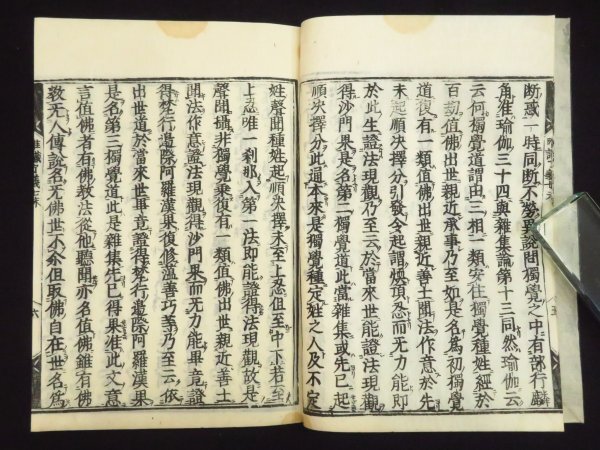 断惑一時同断不勞異說問獨覺之中有部行麟
角准瑜伽三十四與雜集論第十三同然瑜伽云
云何獨覺道謂由三相一類安住獨覺種姓經於
百劫值佛出世親近承事乃至如是名為初獨覺
道復有一類值佛出世親近善士聞法作意於先
未起順決擇分引發令起謂煖頂忍而无力能即
於此生證法現觀乃至云於當來世能證法現觀
得沙門果是名第二獨覺道此當雜集或先已起
順決擇分此通本來是獨覺種定姓之人及不定
姓聲聞種姓起順決擇未至上忍但至中下若至
上忍唯一刹那入第一法即能證得法現觀故是
聲聞攝非獨覺乘復有一類值佛出世親近善士
聞法作意證法現觀得沙門果而无力能畢竟證
得梵行邊際阿羅漢果復修薀善巧等乃至云依
出世道於當來世畢竟證得梵行邊際阿羅漢果
是名第三獨覺道此是雜集先已得果准此文意
言值佛者有佛教法從他聽聞亦名值佛雖有佛
教无人傳說名无佛世不尔但取佛自在世名為
六
五